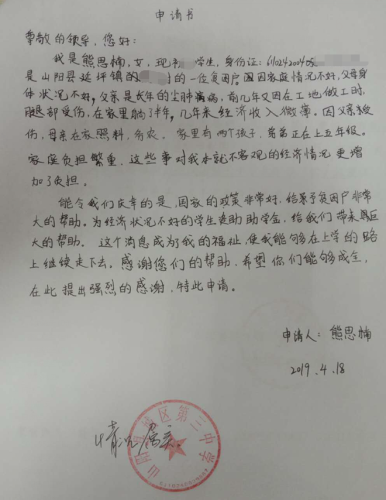 申请书
尊敬的领导，您好：
我是熊思楠，女，现 学生，身份证：61024200405
是山阳县延坪镇的 的一位贫困户因因家庭情况不好，父母身
体状况不好，父亲是长年的尘肺病，前几年又因在工地做工时，
腿部受伤，在家里躺了半年，几年来经济收入微薄。因父亲受
伤，母亲在家照料，务农。家里有两个孩子，弟弟正在上五年级。
家庭负担繁重，这些事对我本就不客观的经济情况更增
加了负担。
能令我们庆幸的是，国家的政策非常好，给予贫困户非常
大的帮助。为经济状况不好的学生资助助学金，给我们带来
大的帮助。这个消息成为了我的福祉，使我能够在上学的路
上继续走下去。感谢您们的帮助，希望你们能够成全，
在此提出强烈的感谢，特此申请。
申请人：熊思楠
2019.4.18
情况属实。
区第三中学